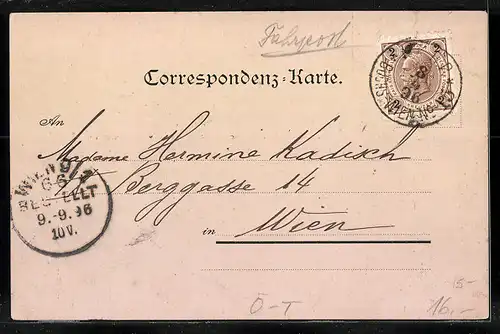 Fahrpost
Correspondenz-Karte.
An
Madame Hermine Kadisch
Berggasse 14
in Wien
WIEN 9
BESTELLT
9.-9.96
10V.
8
96
Ö-T
15-
16,-